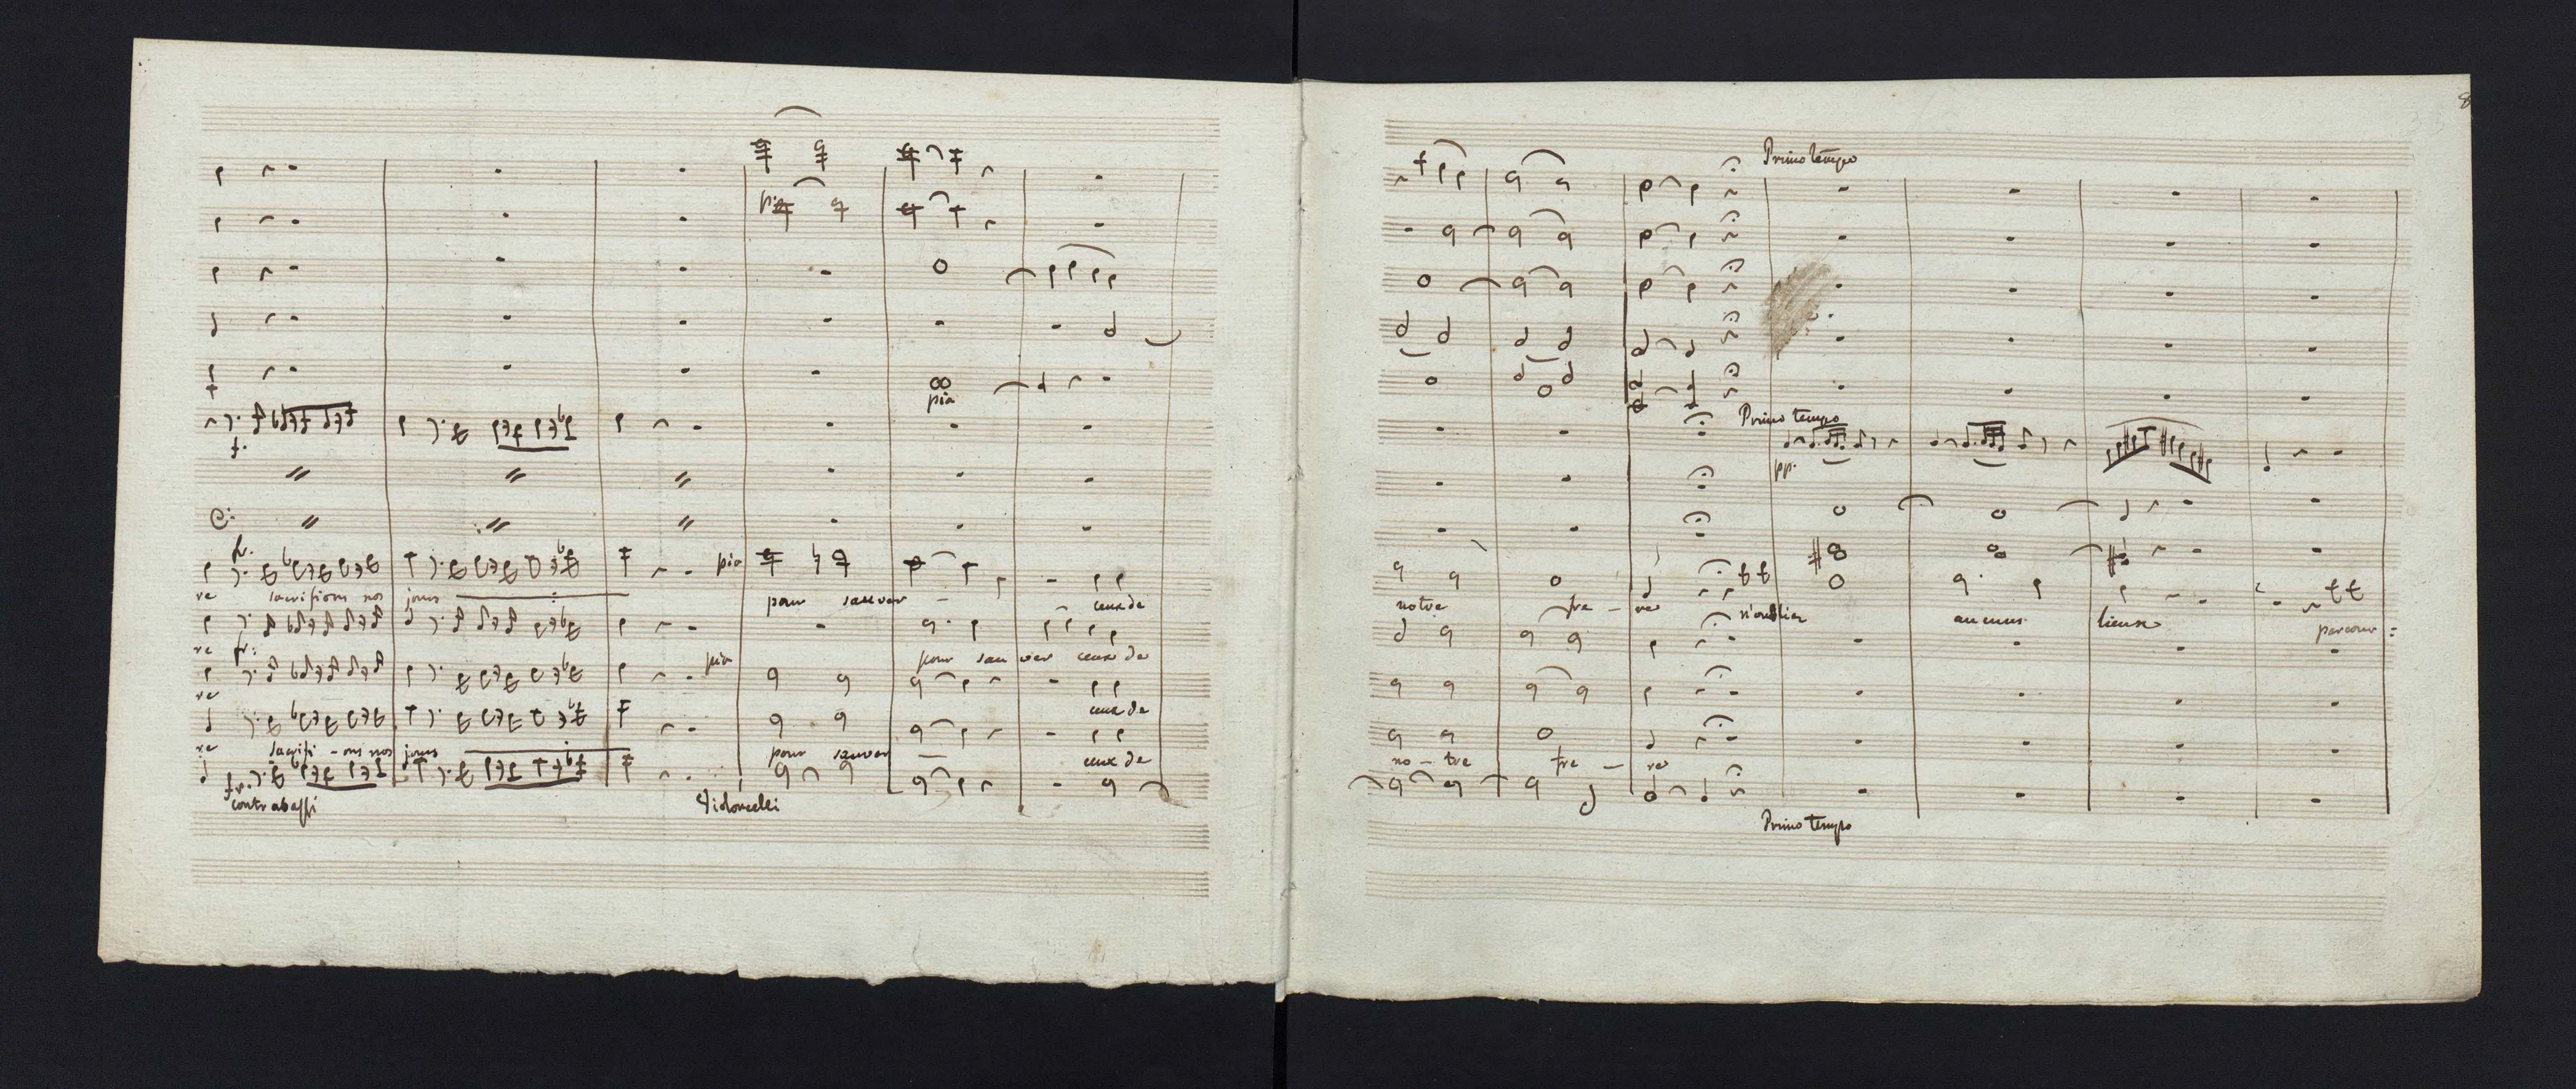 pia
pia
f.
fr.
pia
re sacrifions nos jours pour sauver ceux de
re fr:
pia
pour sauver ceux de
re
ceux de
re sacrifi - ons nos jours pour sauver ceux de
fr.
contrabassi
Violoncelli
8
Primo tempo
Primo tempo
pp.
notre fre - re n'oublier aucuns lieux parcour :
no - tre fre - re
Primo tempo